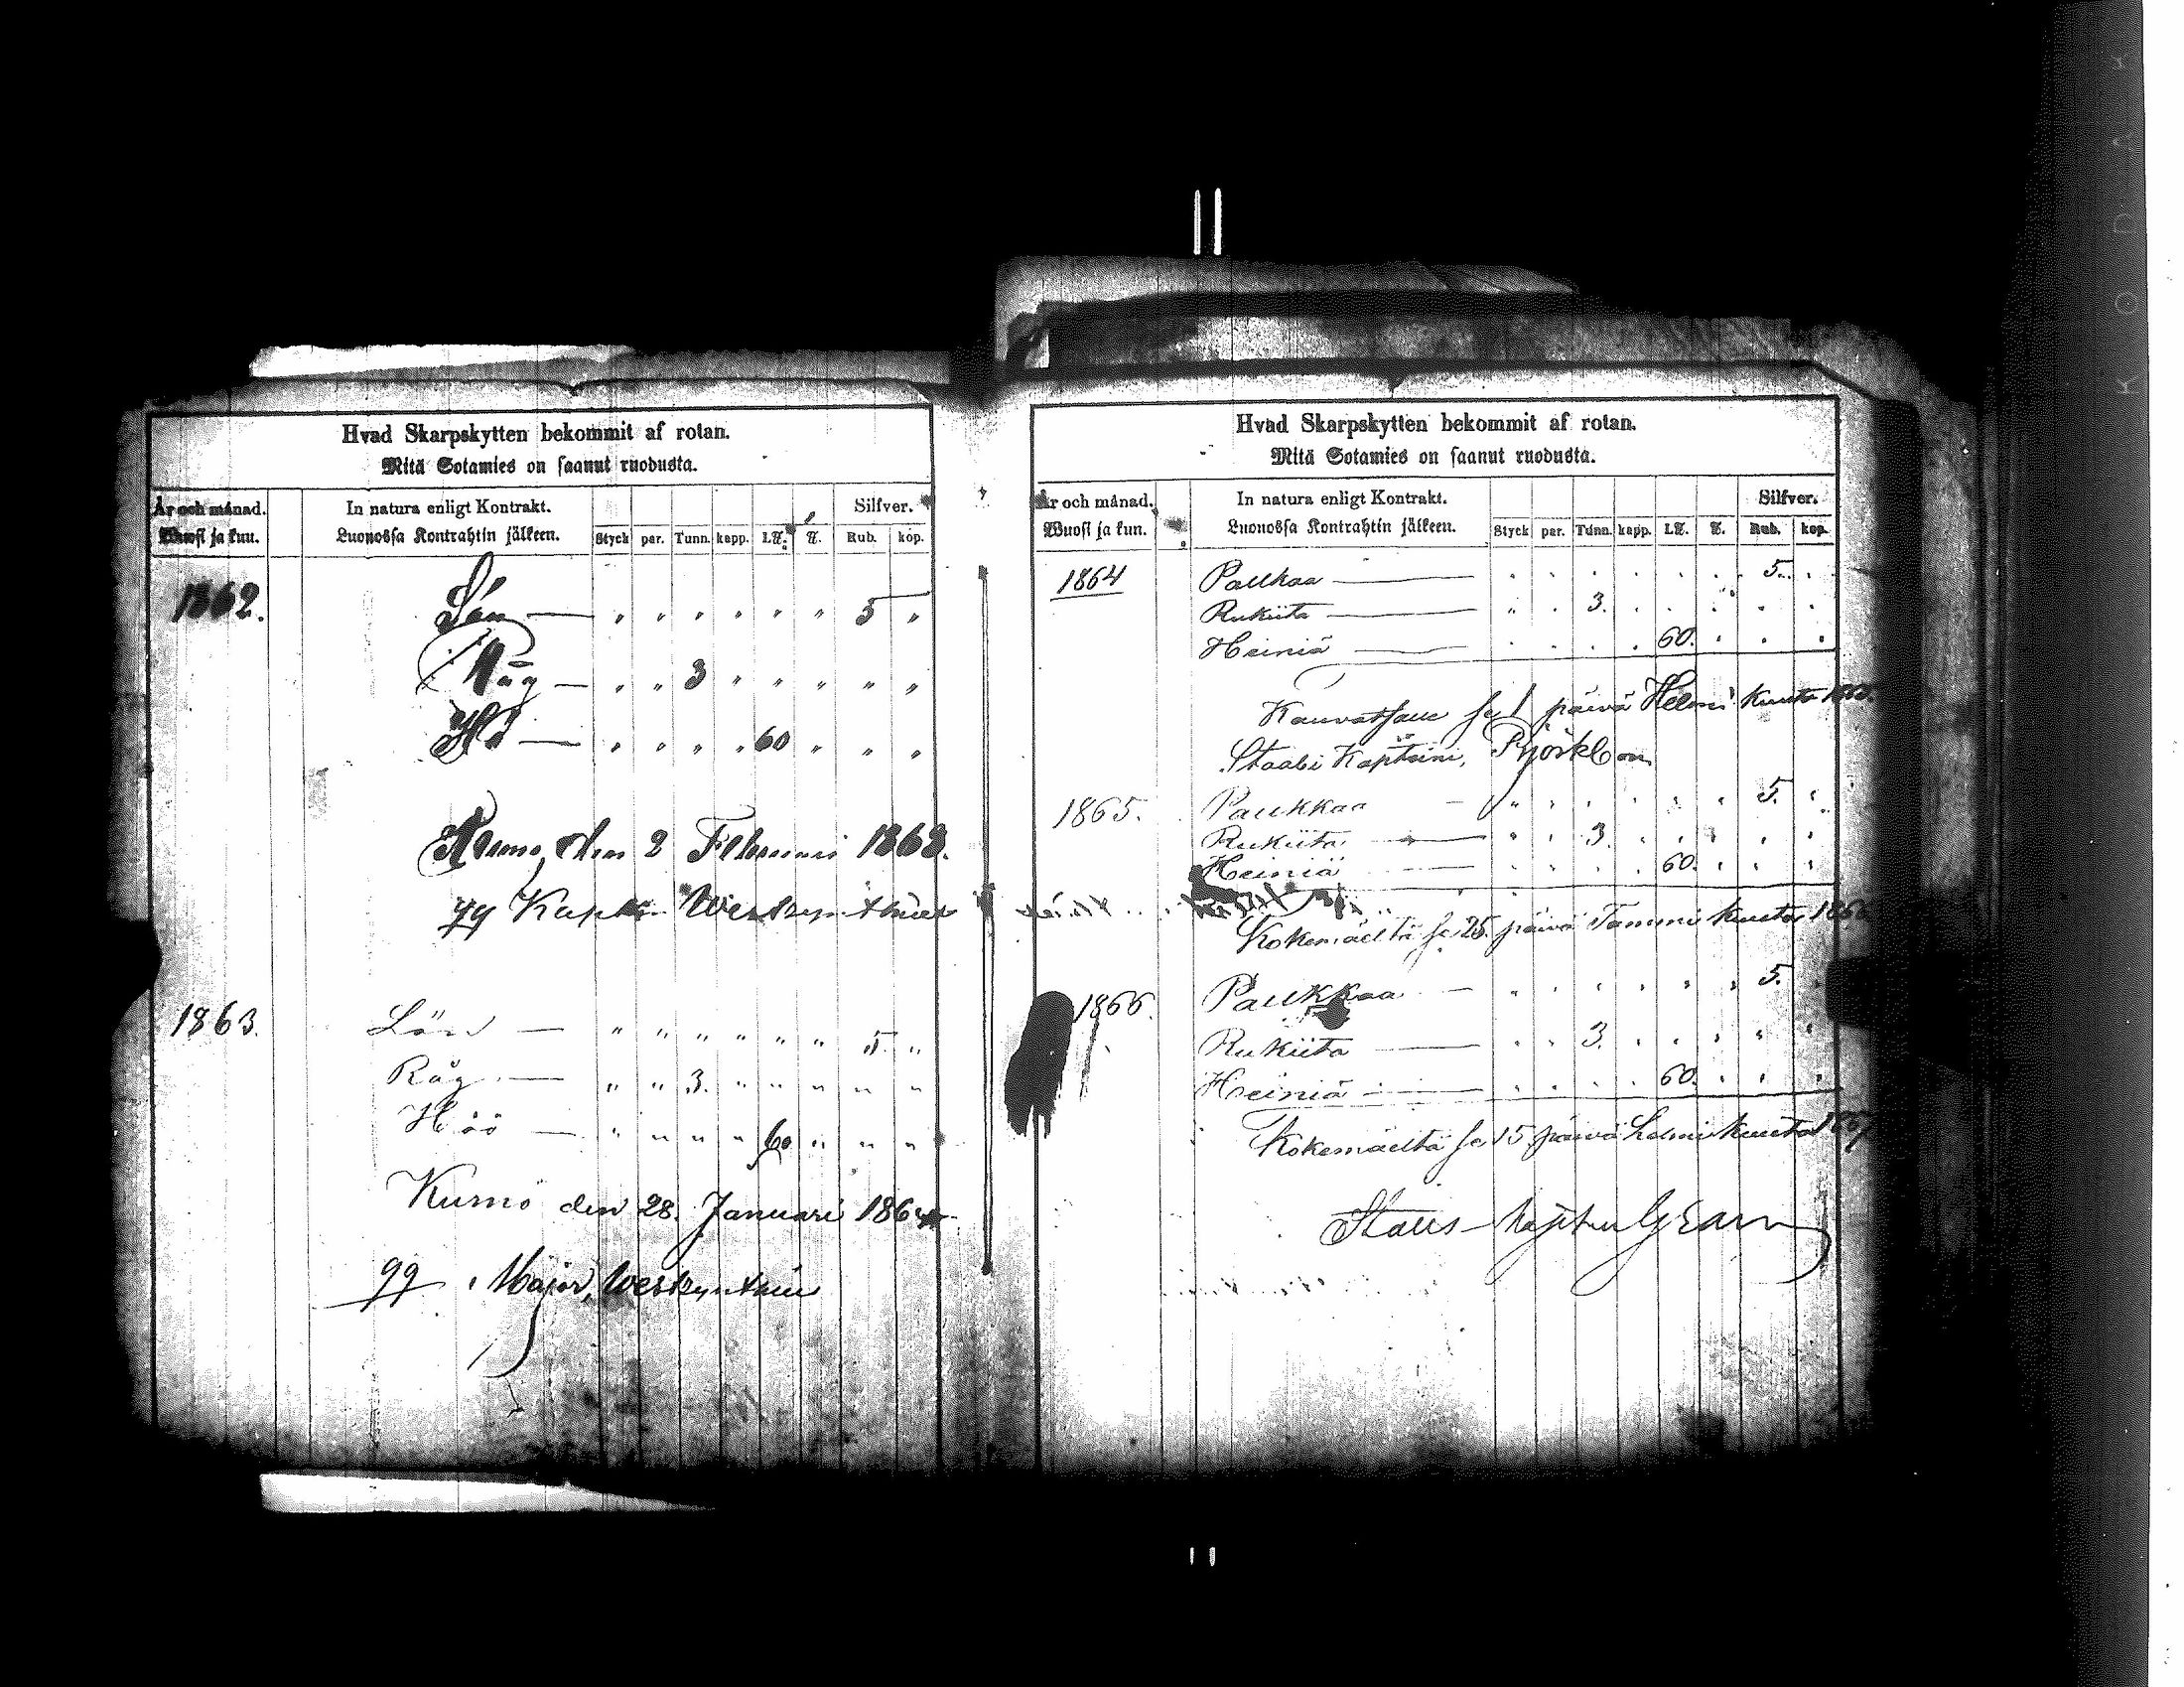 Hvad Skarpskytten bekommit af rotan.
Mitä Sotamies on saanut ruodusta.
År och månad.
Wuosi ja kuu.
In natura enligt Kontrakt.
Luonossa Kontrahtin jälkeen.
Styck par. Tunn. kapp. L℔. ℔.
Silfver.
Rub. kop.
1862. Lön — " " " " " " 5 "
Råg — " " 3 " " " " "
Hö — " " " " 60 " " "
Kumo den 2 Februari 1863.
gg Kapten Westzynthius
1863. Lön — " " " " " " 5. "
Råg — " " 3. " " " " "
Höö — " " " " 60 " " "
Kumo den 28. Januari 1864
gg Major, Westzynthius
Hvad Skarpskytten bekommit af rotan.
Mitä Sotamies on saanut ruodusta.
År och månad.
Wuosi ja kuu.
In natura enligt Kontrakt.
Luonossa Kontrahtin jälkeen.
Styck par. Tunn. kapp. L℔. ℔.
Silfver.
Rub. kop.
1864 Palkkaa — " " " " " " 5. "
Rukiita — " " 3. " " " " "
Heiniä — " " " " 60. " " "
Kauvatsau se 1 päivä Helmi kuuta 1865.
Staabi Kapteini, Björkbom
1865. Paukkaa — " " " " " " 5. "
Rukiita — " " 3. " " " " "
Heiniä — " " " " 60. " " "
Kokemäeltä se 25. päivä Tammi kuuta 1866
1866. Paukkaa — " " " " " " 5. "
Rukiita — " " 3. " " " " "
Heiniä — " " " " 60. " " "
Kokemäeltä se 15 päivä helmi kuuta 1867
Stabs-Kapten
KODAK